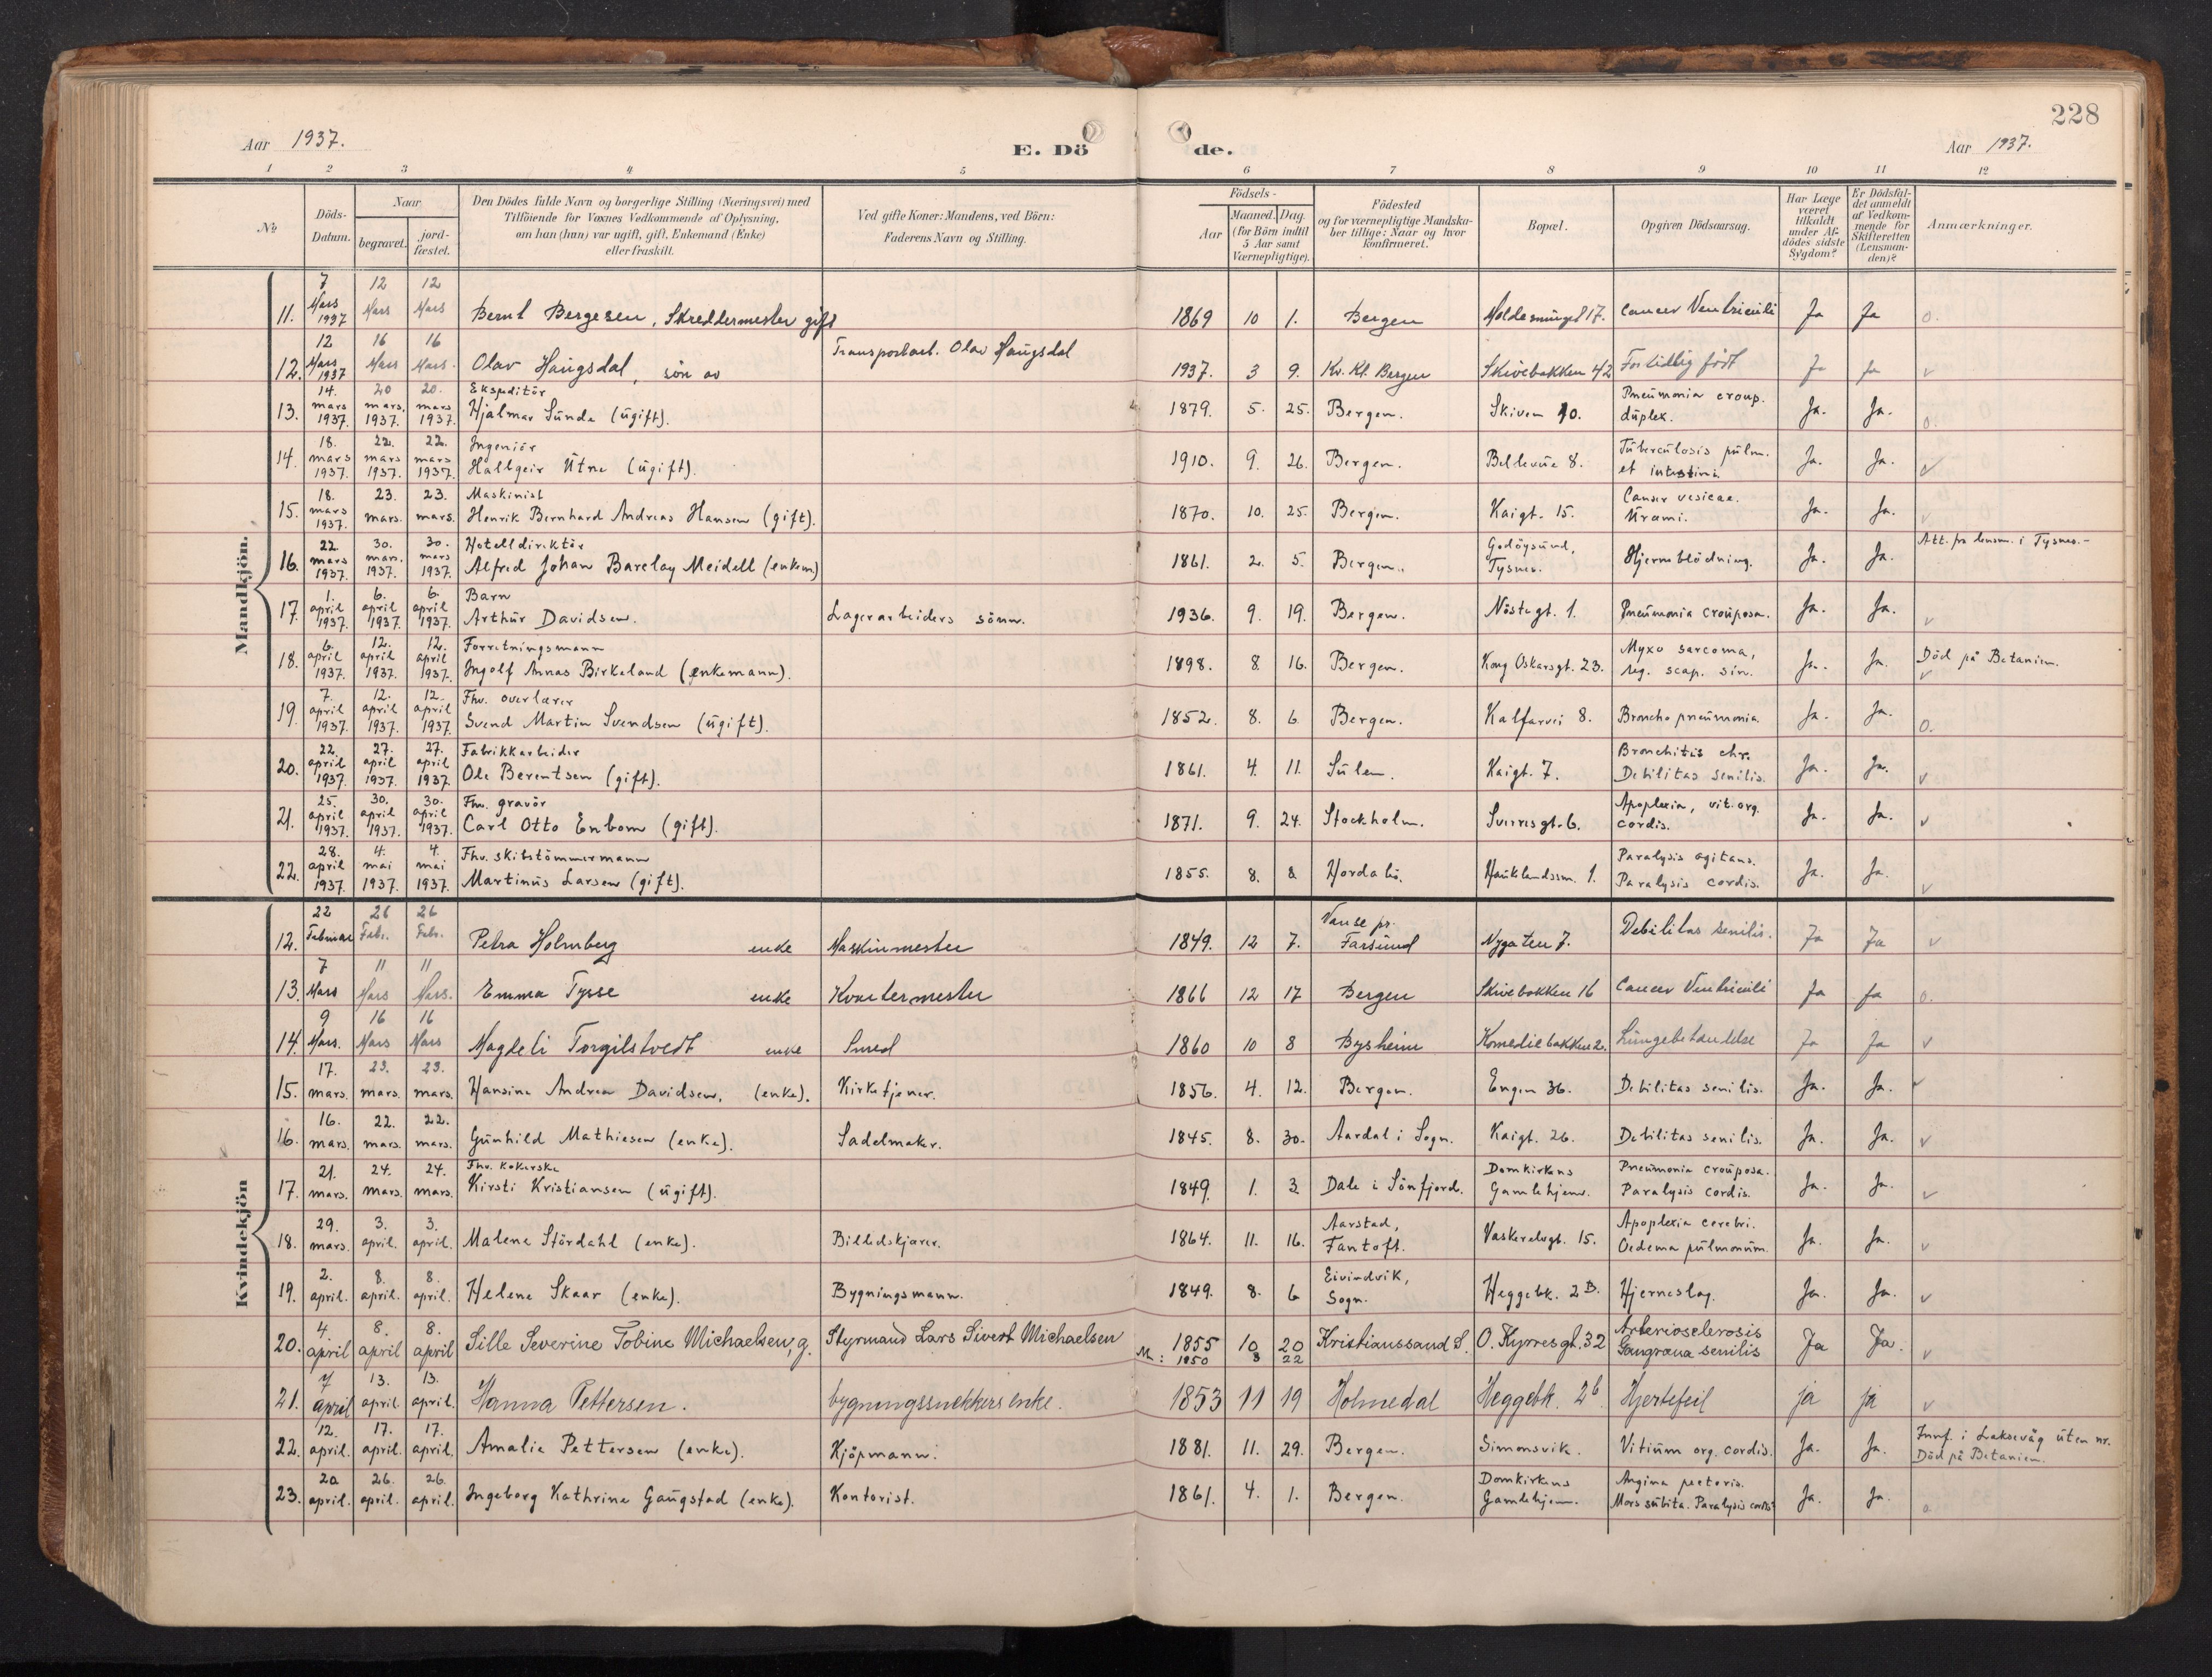 228
Aar 1937.
E. Dö
de.
Aar 1937.
1 2 3 4 5 6 7 8 9 10 11 12
No
Döds-
Datum.
Naar
begravet.
jord-
fæstet.
Den Dödes fulde Navn og borgerlige Stilling (Næringsvei) med
Tilföiende for Voxnes Vedkommende af Oplysning,
om han (hun) var ugift, gift, Enkemand (Enke)
eller fraskilt.
Ved gifte Koner: Mandens, ved Börn:
Faderens Navn og Stilling.
Födsels-
Aar
Maaned. Dag.
(for Börn indtil
5 Aar samt
Værnepligtige).
Födested
og for værnepligtige Mandska-
ber tillige: Naar og hvor
Konfirmeret.
Bopæl.
Opgiven Dödsaarsag.
Har Læge
været
tilkaldt
under Af-
dödes sidste
Sygdom?
Er Dödsfal-
det anmeldt
af Vedkom-
mende for
Skifteretten
(Lensman-
den)?
Anmærkninger.
Mandkjön.
7 12 12
11. Mars 1937 Mars Mars Bernt Bergesen, Skreddermester gift 1869 10 1. Bergen 17. Cancer Ventriculi Ja Ja o.
12 16 16 Transportarb. Olav Haugsdal
12. Mars 1937 Mars Mars. Olav Haugsdal, sön av 1937. 3 9. Kv. Kl. Bergen Skivebakken 42 For tidlig födt Ja Ja v
14. 20 20. Ekspeditör Pneumonia croup.
13. mars 1937. mars, 1937. mars 1937. Hjalmar Sunde (ugift). 1879. 5. 25. Bergen. Skiven 10. duplex. Ja. Ja. o.
18. 22. 22. Ingeniör Tuberculosis pulm.
14. mars 1937. mars 1937. mars 1937. Hallgeir Utne (ugift). 1910. 9. 26. Bergen. Bellevue 8. et intestini. Ja. Ja. v
18. 23. 23. Maskinist Cancer vesicae.
15. mars 1937. mars. mars. Henrik Bernhard Andreas Hansen (gift). 1870. 10. 25. Bergen. Kaigt. 15. Urami. Ja. Ja. v
22. 30. 30. Hotelldirektör Godöysund, Att. fra lensm. i Tysnes.-
16. mars 1937. mars. 1937. mars 1937. Alfred Johan Barclay Meidell (enkem) 1861. 2. 5. Bergen. Tysnes. Hjerneblödning. Ja. Ja.
1. 6. 6. Barn
17. april 1937. april 1937. april 1937. Arthur Davidsen. Lagerarbeiders sönn. 1936. 9. 19. Bergen. Nöstegt. 1. Pneumonia crouposa. Ja. Ja. v
6. 12. 12. Forretningsmann Myxo sarcoma,
18. april 1937. april 1937. april 1937. Ingolf Annas Birkeland (enkemann). 1898. 8. 16. Bergen. Kong Oskarsgt. 23. reg. scap. sin. Ja. Ja. Död på Betanien. v
7. 12. 12. Fhv. overlærer
19. april 1937. april 1937. april 1937. Svend Martin Svendsen (ugift). 1852. 8. 6. Bergen. Kalfarvei 8. Broncho pneumonia. Ja. Ja. o.
22. 27. 27. Fabrikkarbeider Bronchitis chr.
20. april 1937. april 1937. april 1937. Ole Berentsen (gift). 1861. 4. 11. Sulen. Kaigt. 7. Debilitas senilis. Ja. Ja. v
25. 30. 30. Fhv. gravör Apoplexia, vit. org.
21. april 1937. april 1937. april 1937. Carl Otto Enbom (gift). 1871. 9. 24. Stockholm. Sverresgt. 6. cordis. Ja. Ja. v
28. 4. 4. Fhv. skibstömmermann Paralysis agitans.
22. april 1937. mai 1937. mai 1937. Martinus Larsen (gift). 1855. 8. 8. Hordabö. Hauklandssm. 1. Paralysis cordis. Ja. Ja. v
Kvindekjön
22 26 26 Vanse pr.
12. Februar Febr. Febr. Petra Holmberg enke Maskinmester 1849. 12 7. Farsund Nygaten 7. Debilitas senilis. Ja Ja v
7 11 11
13. Mars Mars Mars. Emma Tysse enke Kvartermester 1866 12 17 Bergen Skivebakken 16 Cancer Ventriculi Ja Ja o.
9 16 16
14. Mars. Mars Mars Magdeli Torgilstvedt enke Smed 1860 10 8 Bysheim Komediebakken 2. Lungebetendelse Ja Ja v
17. 23. 23.
15. mars. mars. mars. Hansine Andrea Davidsen. (enke). Kirketjener. 1856. 4. 12. Bergen. Engen 36. Debilitas senilis. Ja. Ja. v
16. 22. 22.
16. mars. mars. mars. Gunhild Mathiesen (enke). Sadelmaker. 1845. 8. 30. Aardal i Sogn. Kaigt. 26. Debilitas senilis. Ja. Ja. v
21. 24. 24. Fhv. kokerske Domkirkens Pneumonia crouposa.
17. mars. mars. mars. Kirsti Kristiansen (ugift). 1849. 1. 3. Dale i Sönfjord. Gamlehjem. Paralysis cordis. Ja. Ja. v
29. 3. 3. Aarstad, Apoplexia cerebri.
18. mars. april. april. Malene Stördahl (enke). Billedskjærer. 1864. 11. 16. Fantoft. Vaskerelvgt. 15. Oedema pulmonum. Ja. Ja. v
2. 8. 8. Eivindvik,
19. april. april. april. Helene Skaar (enke). Bygningsmann. 1849. 8. 6 Sogn. Heggebk. 2 B. Hjerneslag. Ja. Ja. v
4. 8. 8. Arteriosclerosis
20. april april april Sille Severine Tobine Michaelsen, g. Styrmand Lars Sivert Michaelsen 1855 10 20 Kristianssand S. O. Kyrresgt. 32 Gangræna senilis Ja Ja. v
M: 1850 8 22
7 13. 13.
21. april april. april. Hanna Pettersen. bygningssnekkers enke. 1853 11 19 Holmedal Heggebk. 2b. Hjertefeil ja ja v
12. 17. 17. Innf. i Laksevåg uten nr.
22. april. april. april. Amalie Pettersen (enke). Kjöpmann. 1881. 11. 29. Bergen. Simonsvik. Vitium org. cordis. Ja. Ja. Död på Betanien.
20 26. 26. Domkirkens Angina pectoris.
23. april. april. april. Ingeborg Kathrine Gaugstad (enke). Kontorist. 1861. 4. 1. Bergen. Gamlehjem. Mors subita. Paralysis cordis Ja. Ja. o.